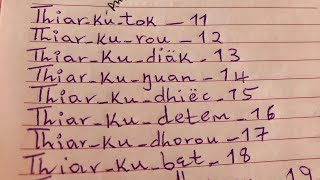 Thiar-ku-tok - 11
Thiar-ku-rou - 12
Thiar-Ku-diäk - 13
Thiar-Ku-ŋuan - 14
Thiar-Ku-dhiëc - 15
Thiar-Ku-detem - 16
Thiar-Ku-dhorou - 17
Thiar-Ku-bɛt - 18
19